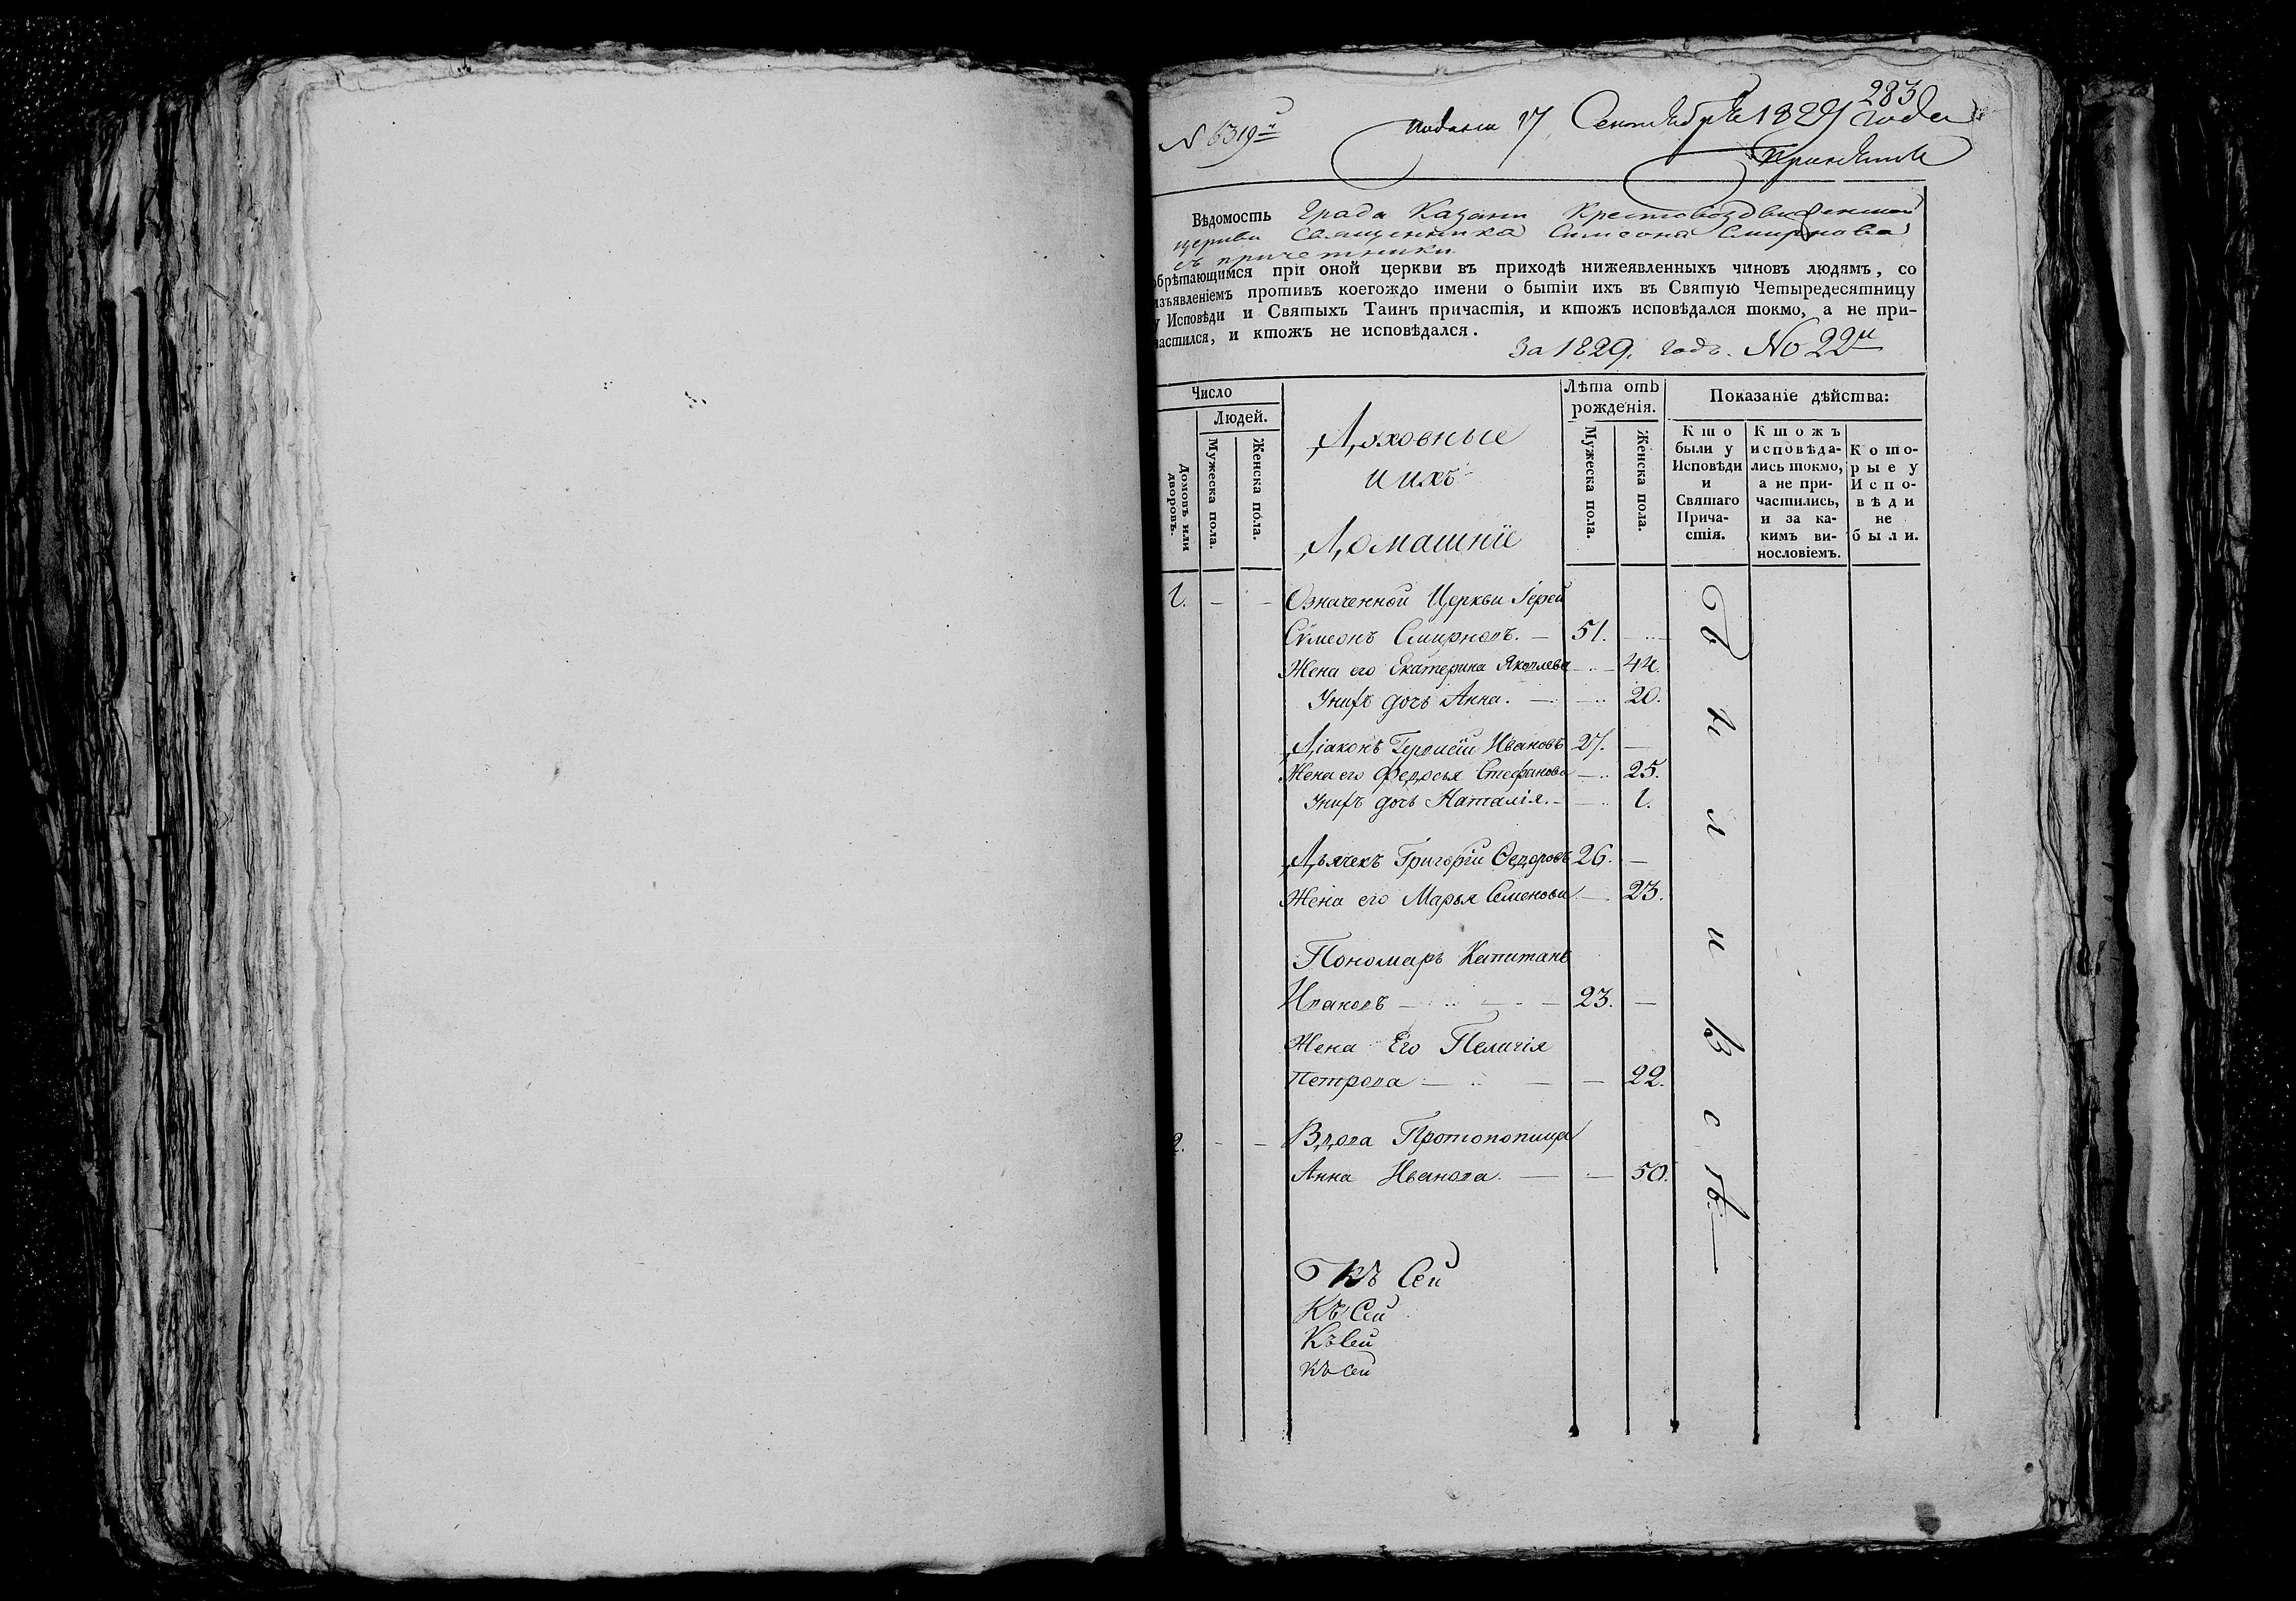 283
№ 6319й
Подана 17 Сентября 1829 года
Вѣдомость Града Казани Крестовоздвиженской
церкви Священника Симеона Смирнова
съ причетники
обрѣтающимся при оной церкви въ приходѣ нижеявленныхъ чиновъ людямъ, со
изъявленіемъ противъ коегождо имени о бытіи ихъ въ Святую Четыредесятницу
у Исповѣди и Святыхъ Таинъ причастія, и ктожъ исповѣдался токмо, а не при-
частился, и ктожъ не исповѣдался.
За 1829. годъ. No 22й
Число
Людей.
Домовъ или дворовъ.
Мужеска пола.
Женска пола.
Духовные
и ихъ
Домашніе
Лѣта отъ
рожденія.
Мужеска пола.
Женска пола.
Показаніе дѣйства:
Кто
были у
Исповѣди
и
Святаго
Прича-
стія.
Ктожъ
исповѣда-
лись токмо,
а не при-
частились,
и за ка-
кимъ ви-
нословіемъ.
Кото-
рые у
Испо-
вѣди
не
были.
1. — — Означенной Церкви Іерей
Сѵмеонъ Смирновъ. — 51. —
Жена его Екатерина Яковлева — 44.
Унихъ дочь Анна. — — 20.
Діаконъ Иванов 27. —
Жена его Федосья Стефанова — 25.
Унихъ дочь Наталія. — — 1.
Дьячекъ Григорій Ѳедоровъ 26. —
Жена его Марья Семенова — 23.
Пономарь Капитанъ
Ивановъ — 23. —
Жена Его Пелагія
Петрова — — 22.
2. — — Вдова Протопопица
Анна Иванова. — — 50.
къ Сей
Къ Сей
Къ Сей
Къ сей
были всѣ